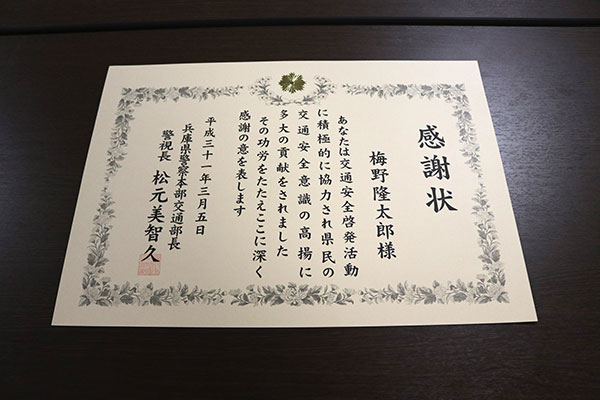 感謝状
梅野隆太郎様
あなたは交通安全啓発活動
に積極的に協力され県民の
交通安全意識の高揚に
多大の貢献をされました
その功労をたたえここに深く
感謝の意を表します
平成三十一年三月五日
兵庫県警察本部交通部長
警視長 松元美智久